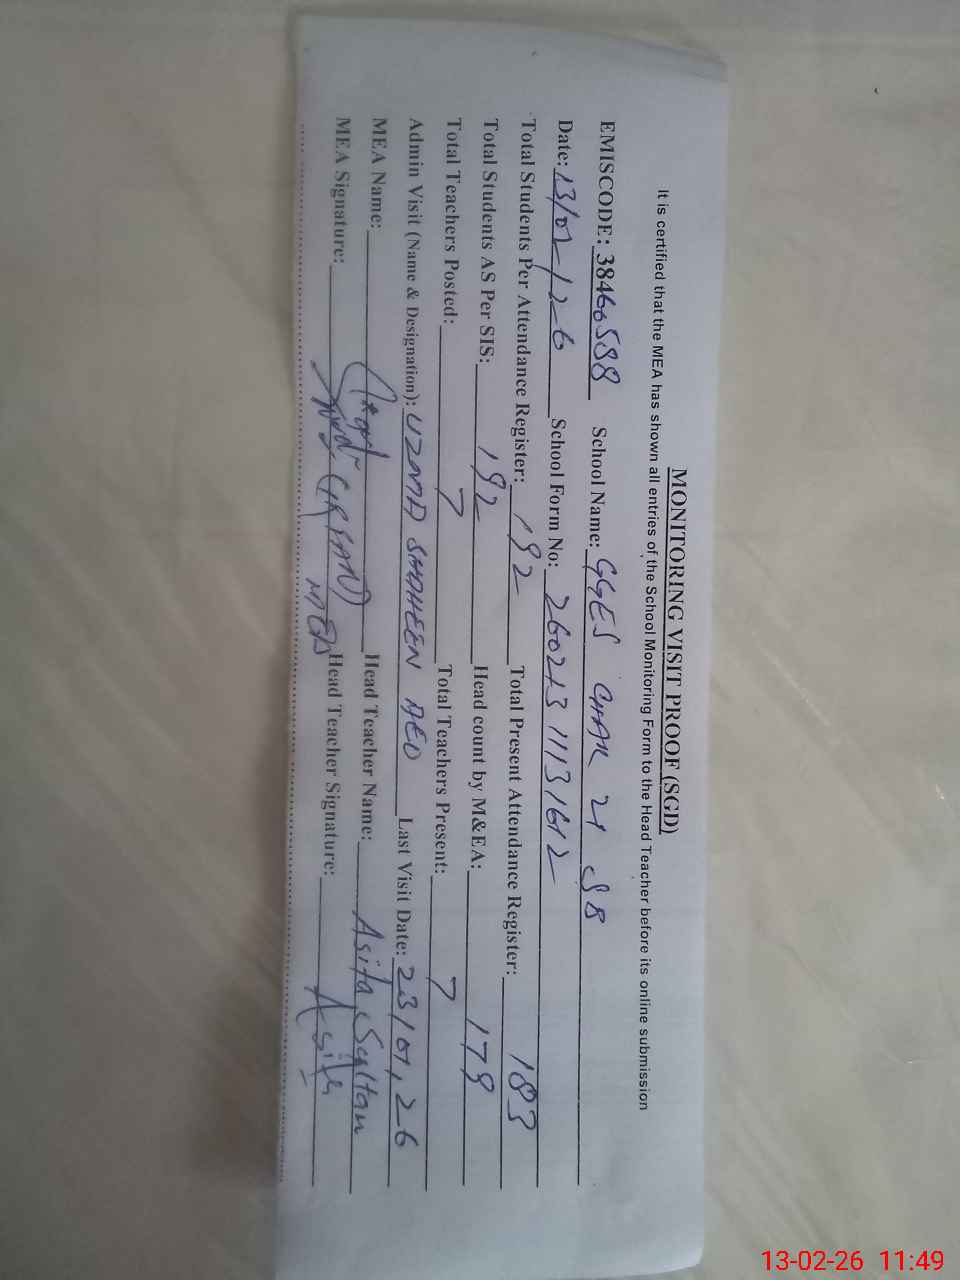 MONITORING VISIT PROOF (SGD)
It is certified that the MEA has shown all entries of the School Monitoring Form to the Head Teacher before its online submission
EMISCODE: 38460588 School Name: GGES CHAK 21 SB
Date: 13/02/26 School Form No: 260213 11131612
Total Students Per Attendance Register: 192 Total Present Attendance Register: 183
Total Students AS Per SIS: 192 Head count by M&EA: 179
Total Teachers Posted: 7 Total Teachers Present: 7
Admin Visit (Name & Designation): UZMA SHAHEEN AEO Last Visit Date: 23/01/26
MEA Name: Head Teacher Name: Asifa Sultan
MEA Signature: MEA Head Teacher Signature: Asifa
13-02-26 11:49